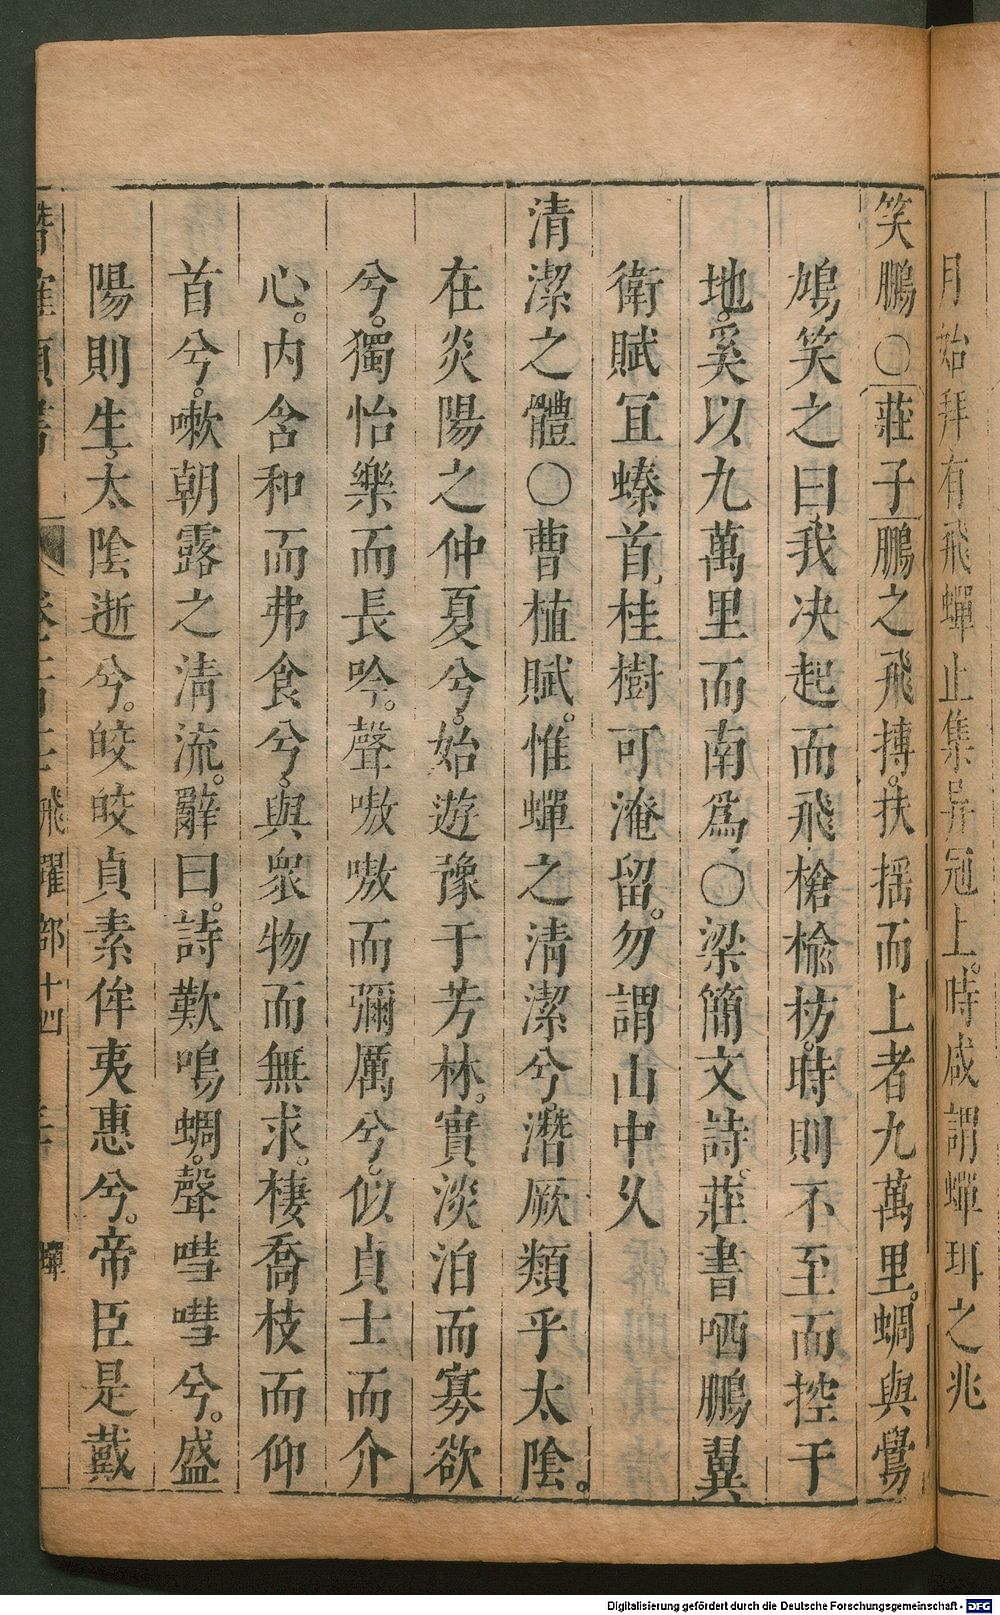 月始拜有飛蟬止集弁冠上。時咸謂蟬珥之兆
笑鵬○莊子鵬之飛搏。扶揺而上者九萬里。蜩與鷽
鳩笑之曰我决起而飛槍楡枋。時則不至而控于
地。奚以九萬里而南爲○梁簡文詩。莊書哂鵬翼
衛賦宜螓首。桂樹可淹留。勿謂山中久
清潔之體○曹植賦。惟蟬之清潔兮。潛厥類乎太陰。
在炎陽之仲夏兮。始遊豫于芳林。實淡泊而寡欲
兮。獨怡樂而長吟。聲噭噭而彌厲兮。似貞士而介
心。内含和而弗食兮。與衆物而無求。棲喬枝而仰
首兮。嗽朝露之清流。辭曰。詩歎鳴蜩。聲嘒嘒兮。盛
陽則生。太陰逝兮。皎皎貞素侔夷惠兮。帝臣是戴
飛躍部十四 蟬
Digitalisierung gefördert durch die Deutsche Forschungsgemeinschaft - DFG